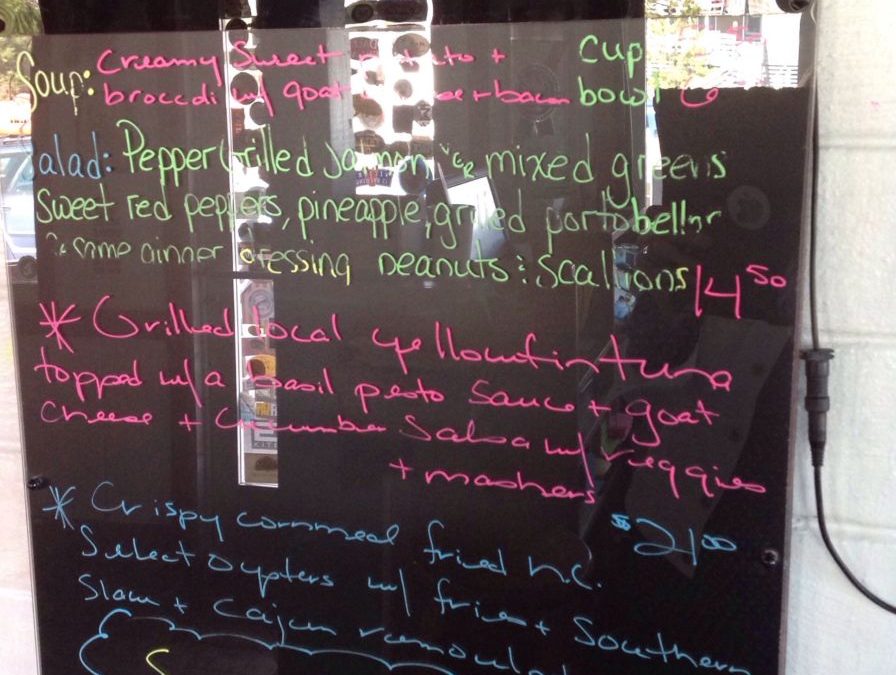 Soup: Creamy Sweet potato + Cup
broccoli w/ goat cheese + bacon bowl
Salad: Pepper Grilled Salmon mixed greens
Sweet red peppers, pineapple, grilled portobello
Sesame ginger dressing peanuts : scallions 14 50
* Grilled local yellowfin tuna
topped w/ a basil pesto sauce + goat
cheese + cucumber Salsa w/ veggies
+ mashers
* Crispy cornmeal fried n.c. $21 00
Select oysters w/ fries + Southern
Slaw + Cajun remoulade